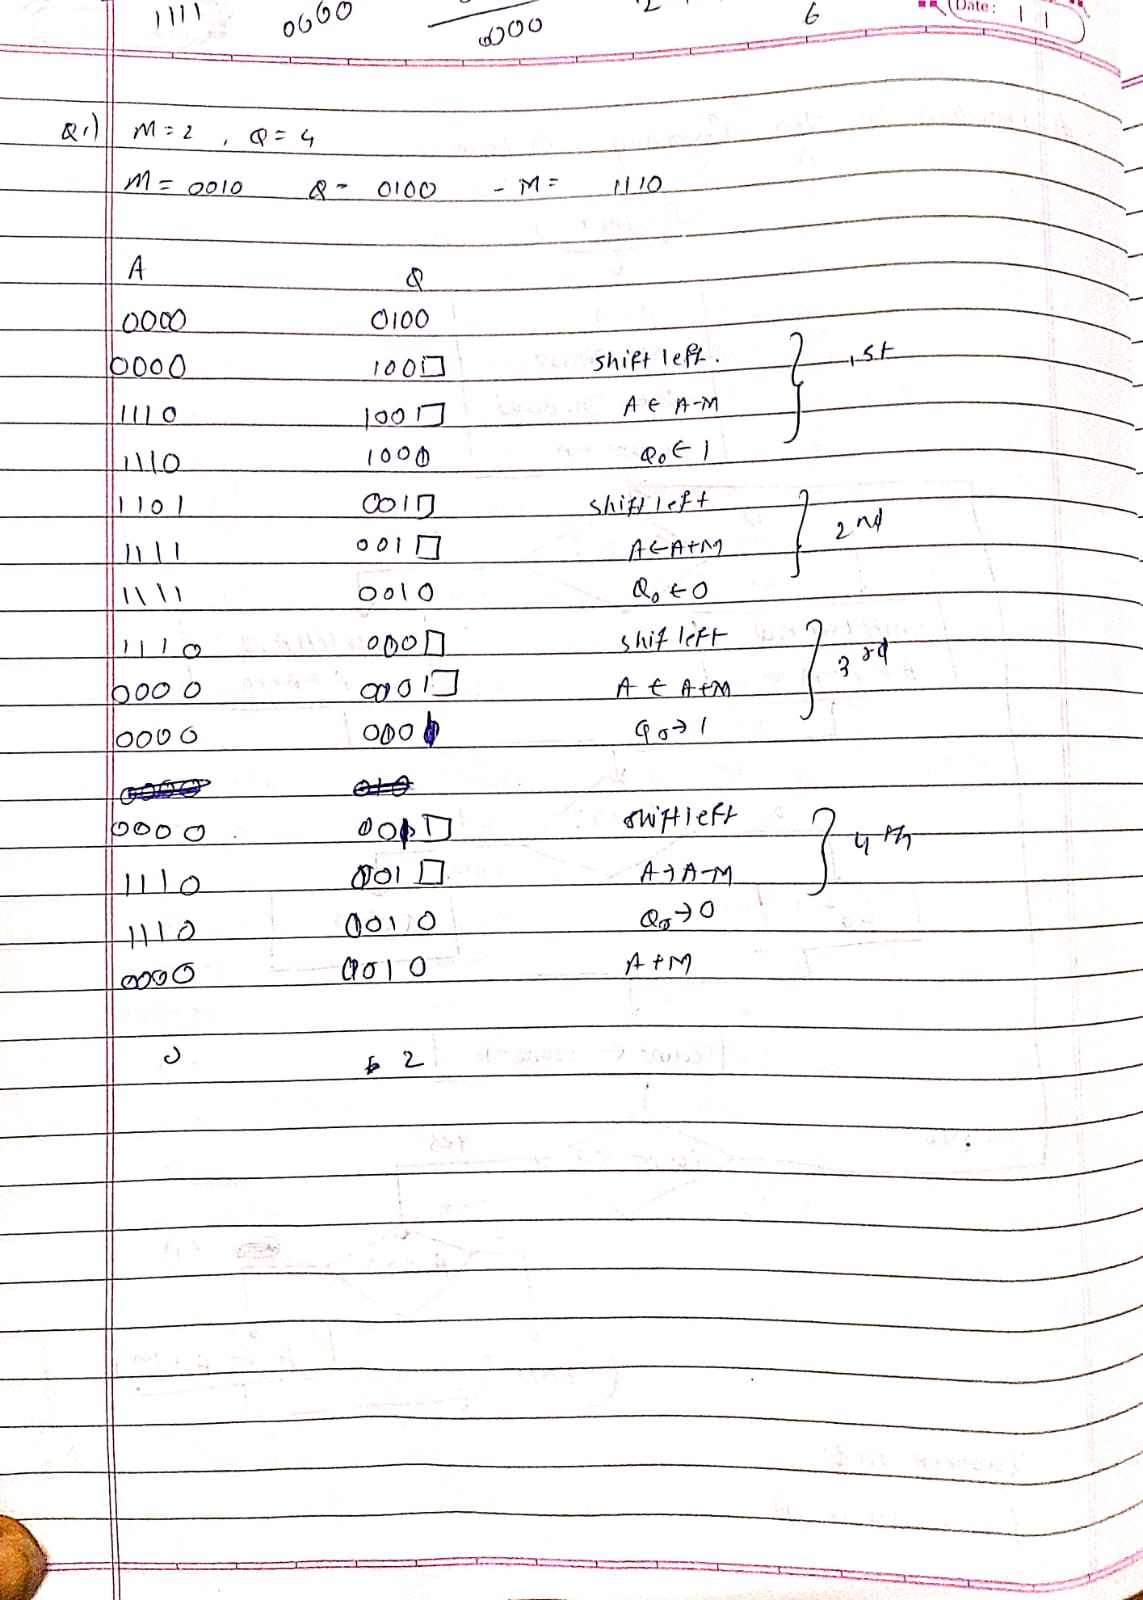 1111 0000 0000 2 6 Date:
Q.1) M=2 , Q=4
M=0010 Q= 0100 -M= 1110
A Q
0000 0100
0000 100□ shift left. } 1st
1110 100□ A←A-M
1110 1000 Q0←1
1101 001□ shift left } 2nd
1111 001□ A←A+M
1111 0010 Q0←0
1110 000□ shif left } 3rd
0000 0001□ A←A+M
0000 000 Q0→1
0000 001□ shift left } 4th
1110 001□ A→A-M
1110 0010 Q0→0
0000 0010 A+M
0 2